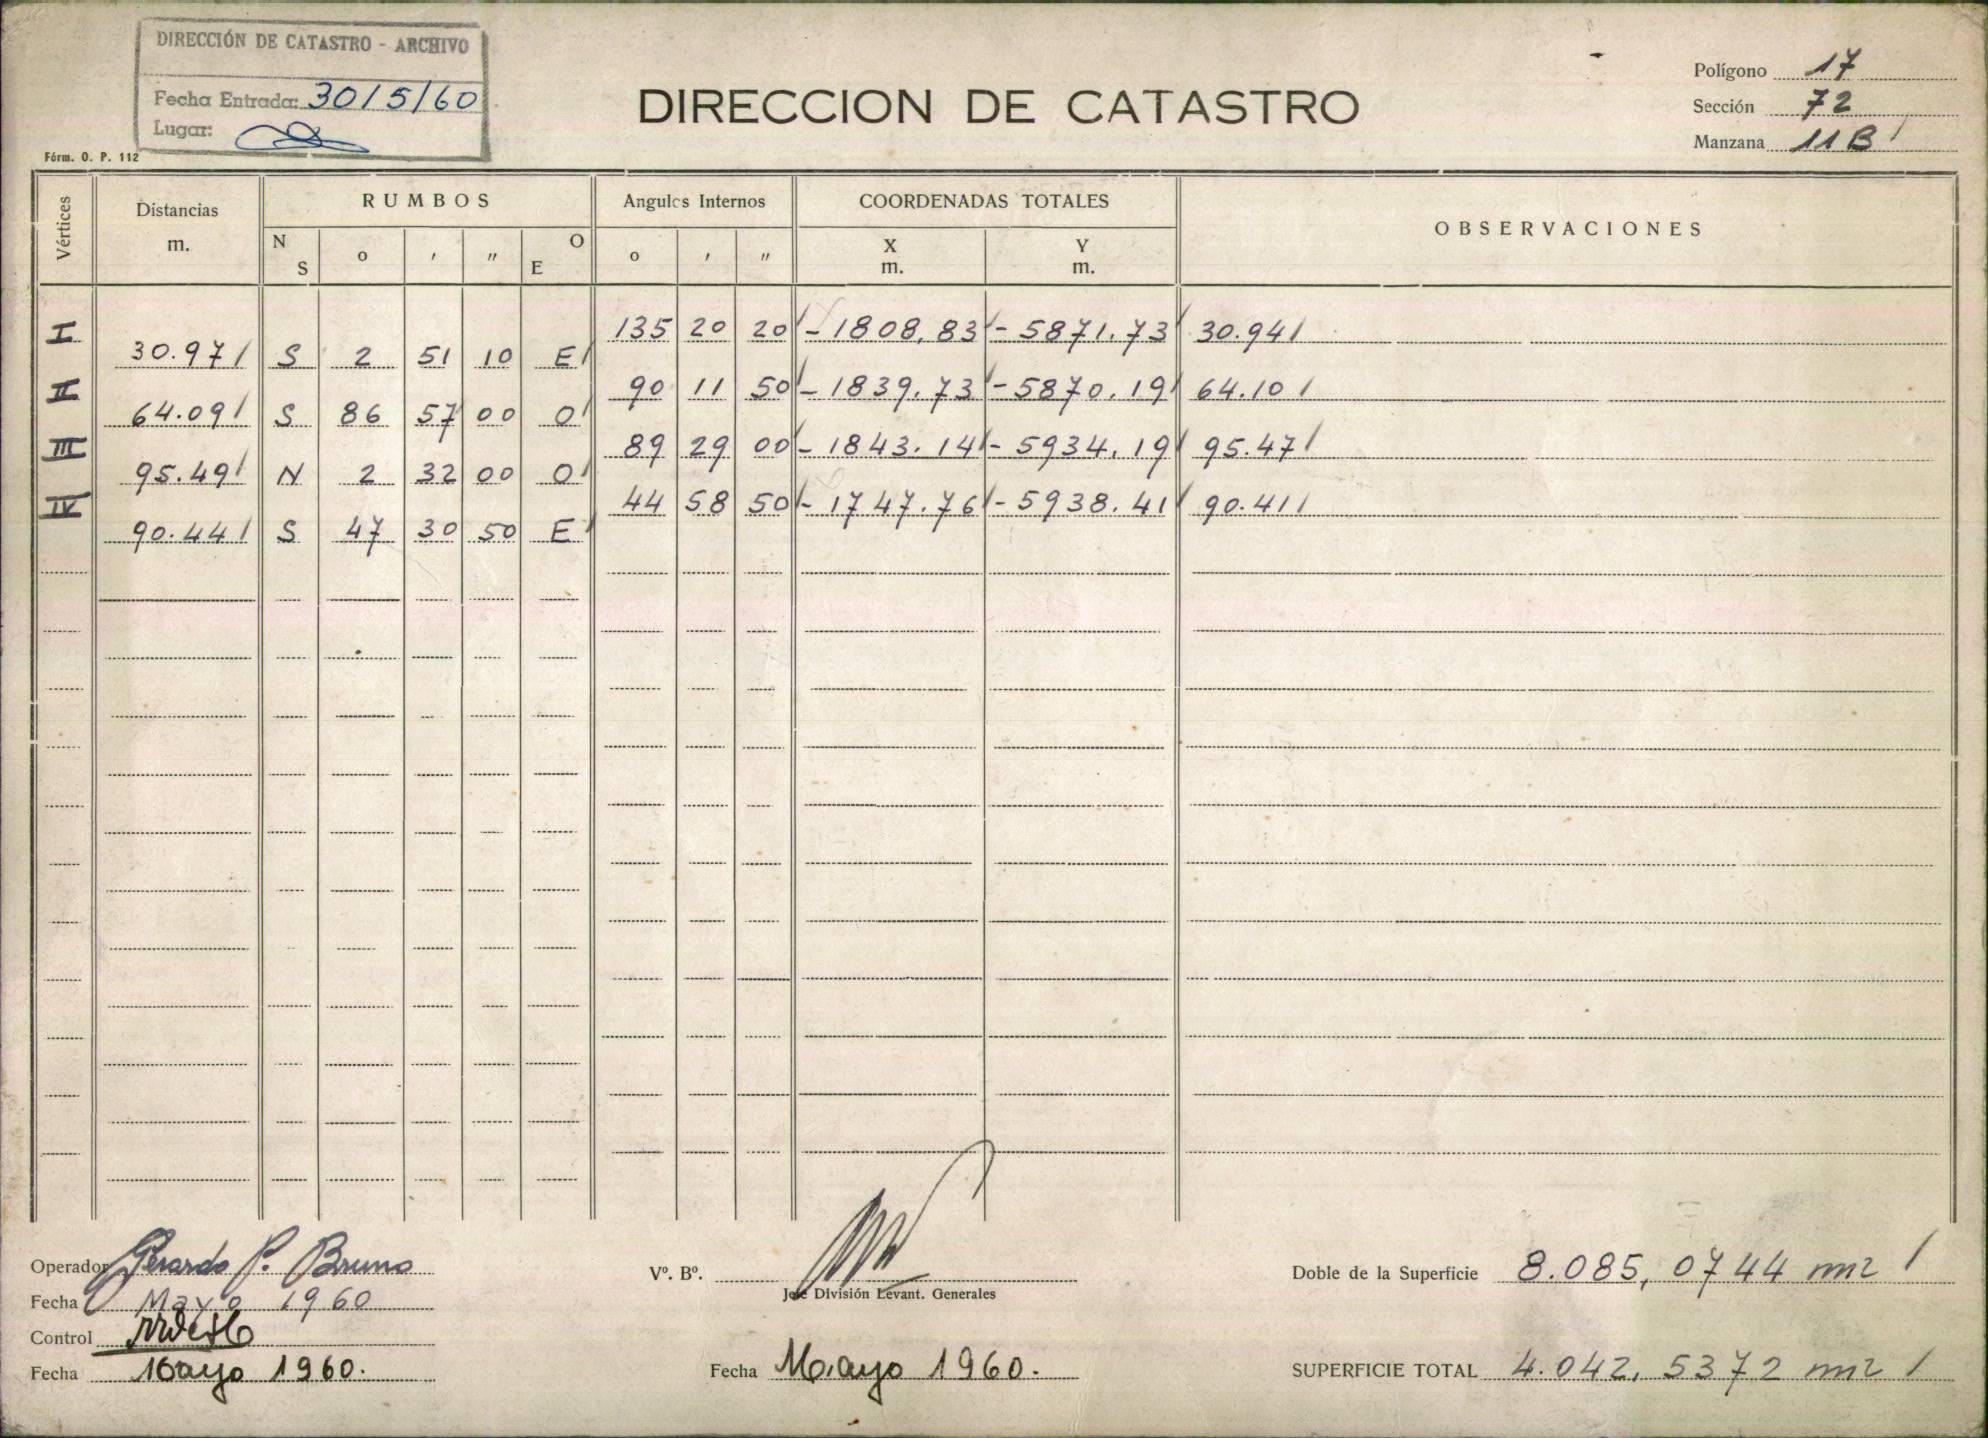 DIRECCIÓN DE CATASTRO - ARCHIVO
Fecha Entrada: 30/5/60
Lugar:
Fórm. O. P. 112
DIRECCION DE CATASTRO
Polígono 17
Sección 72
Manzana 11B
Vértices Distancias m. RUMBOS Angulos Internos COORDENADAS TOTALES OBSERVACIONES
N S o ' " O E o ' " X m. Y m.
I 135 20 20 -1808,83 -5871.73 30.94
30.97 S 2 51 10 E
II 90 11 50 -1839.73 -5870.19 64.10
64.09 S 86 57 00 O
III 89 29 00 -1843.14 -5934.19 95.47
95.49 N 2 32 00 O
IV 44 58 50 -1747.76 -5938.41 90.41
90.44 S 47 30 50 E
Operador Gerardo P. Bruno
Fecha Mayo 1960
Control
Fecha Mayo 1960.
Vº. Bº.
Jefe División Levant. Generales
Fecha Mayo 1960.
Doble de la Superficie 8.085,0744 m2
SUPERFICIE TOTAL 4.042,5372 m2